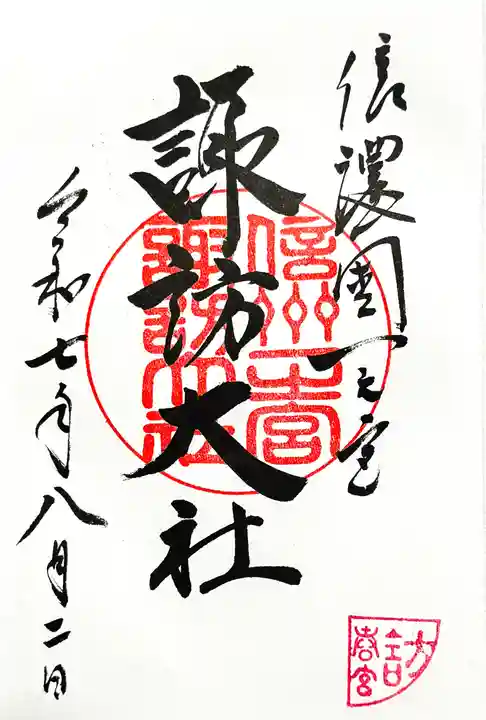 信濃國一之宮
諏訪大社
信州一宮
諏訪大社
令和七年八月二日
諏訪
春宮